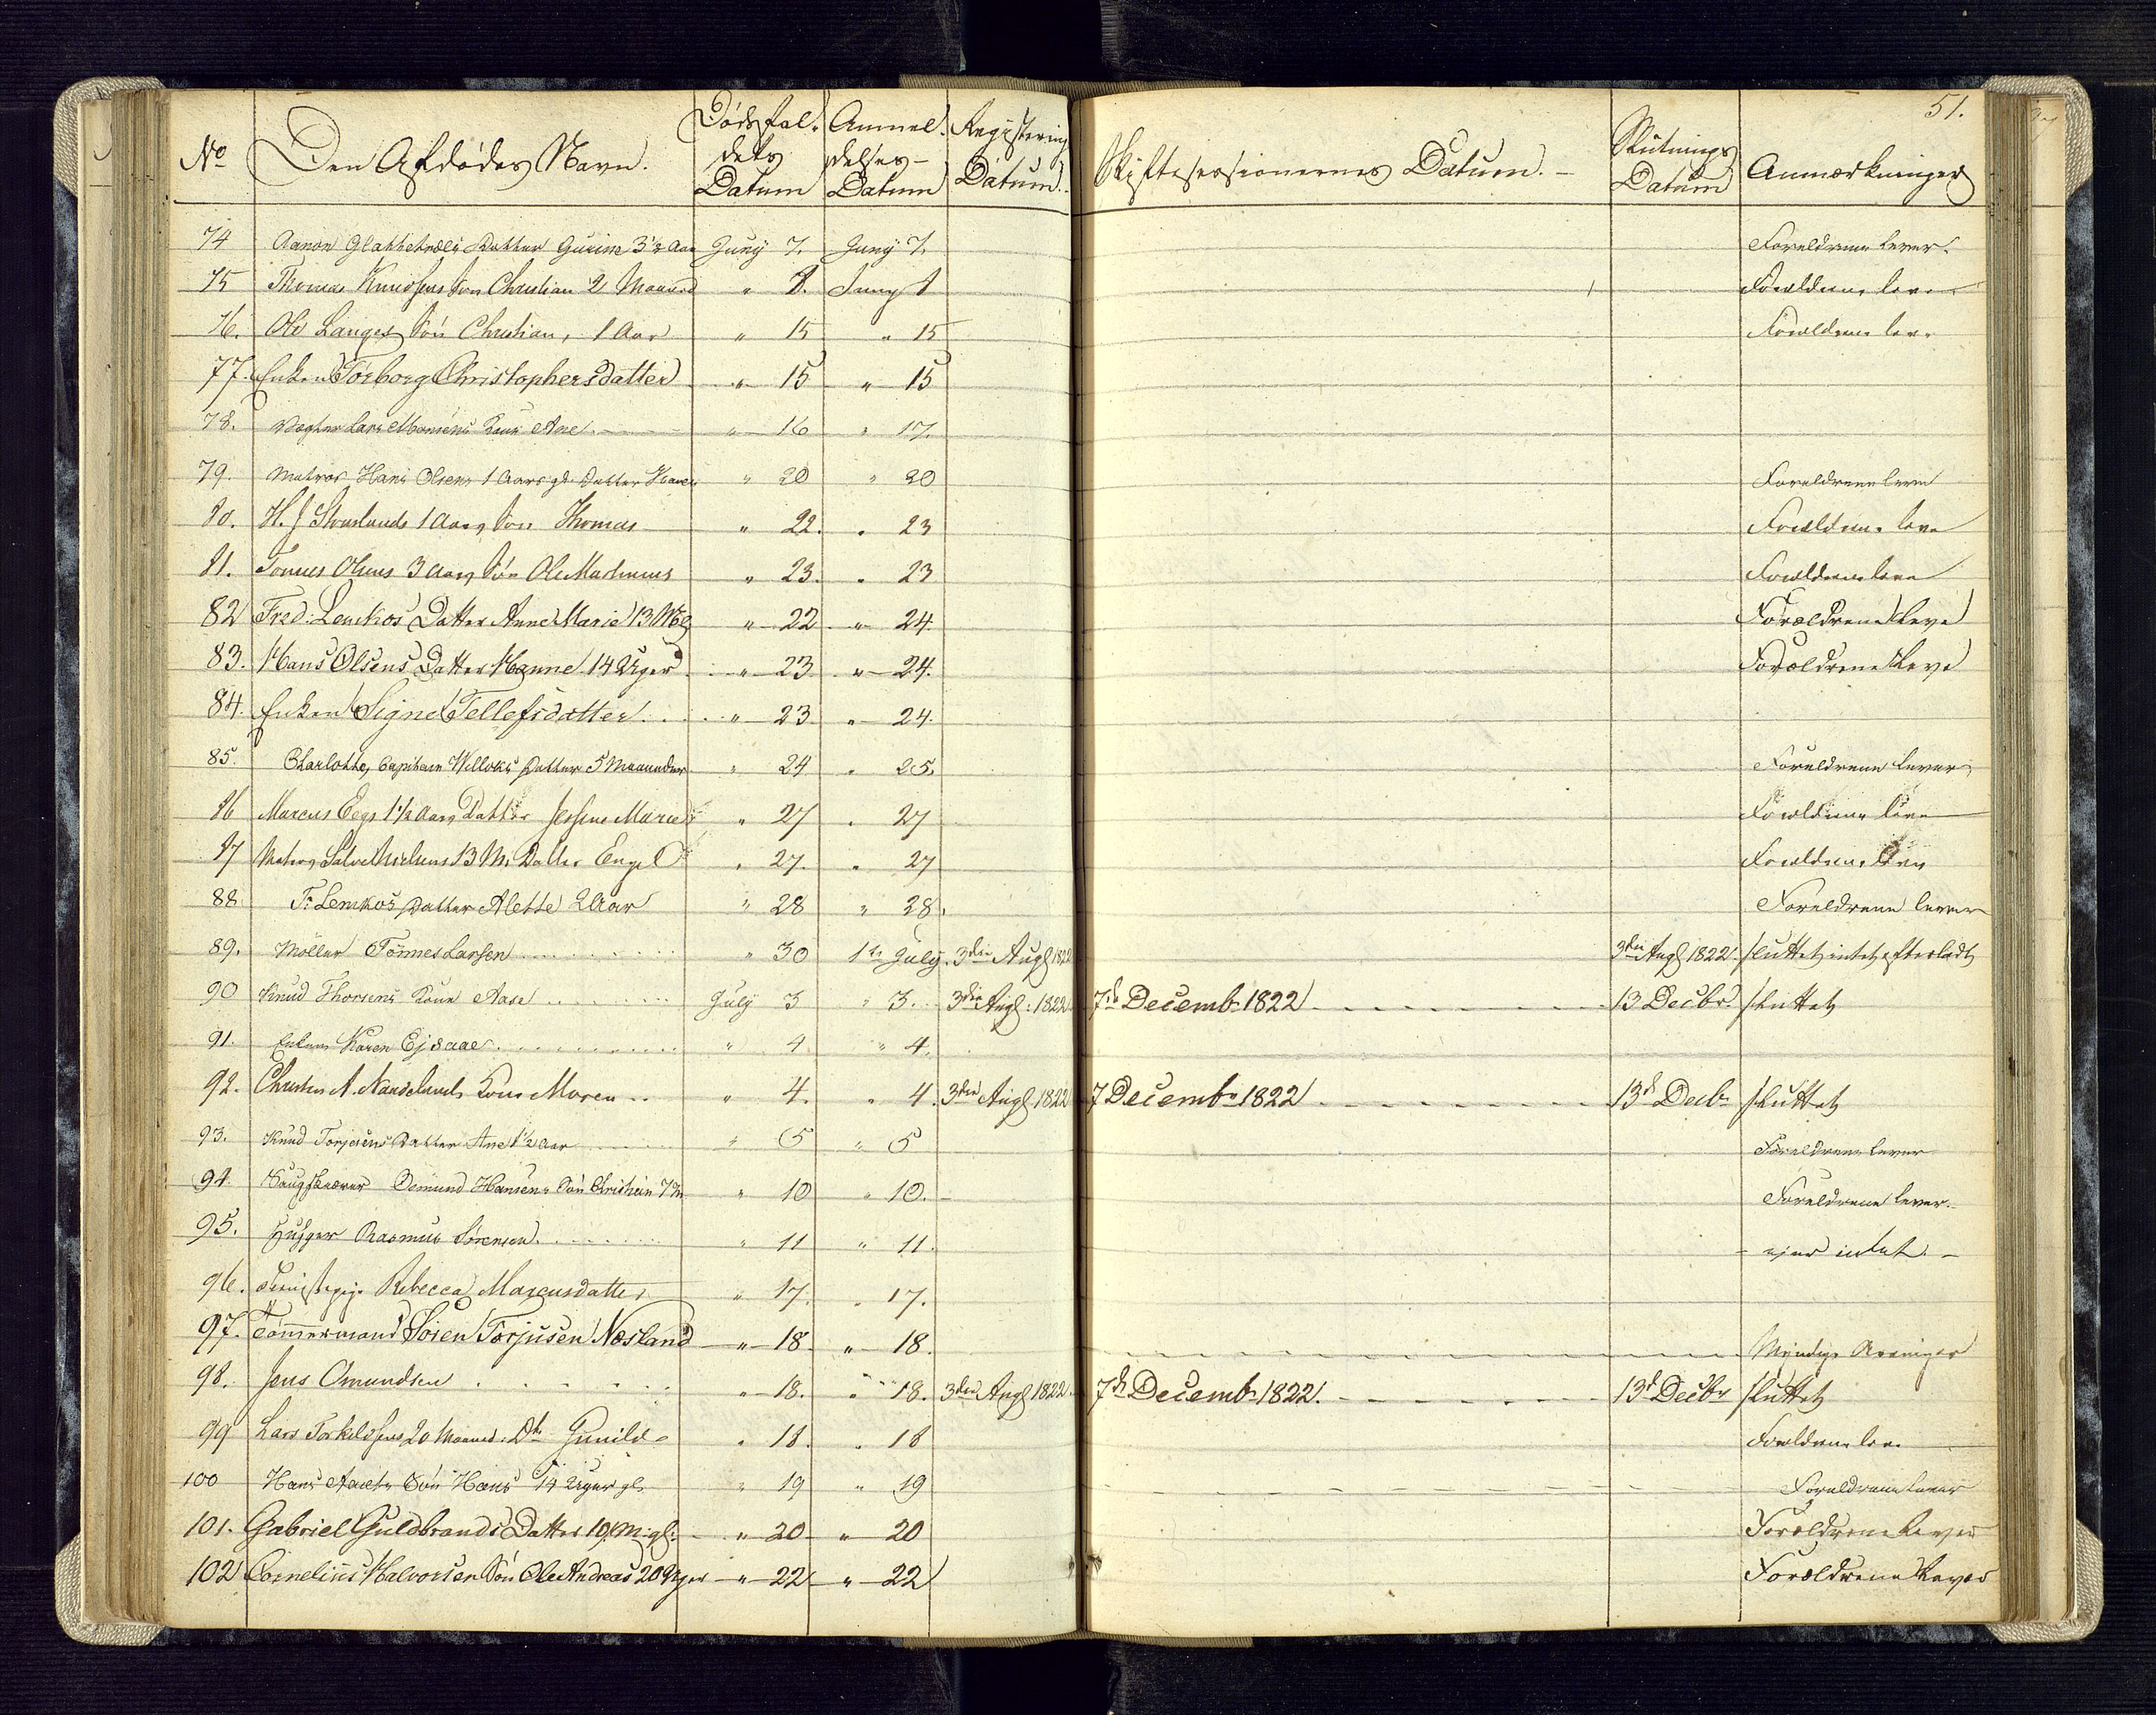 51.
No Den Afdødes Navn. Dødsfaldets Datum Anmeldelses-Datum Registerings Datum. Skiftesessionernes Datum. Slutnings Datum Anmærkninger
74 Aanon Datter Gurine 3½ Aar Juny 7. Juny 7. Foreldrene lever.
75 Thomas Knudsens Søn Christian 2 Maaned " 8. Juny 8 Forældrene leve
76. Ole Langes Søn Christian, 1 Aar " 15 " 15 Forældrene leve
77. Enken Torborg Christophersdatter " 15 " 15
78. Vægter Lars Monsens Kone Ane " 16 " 17.
79. Matros Hans Olsens 1 Aars gl. Datter Karen " 20 " 20 Foreldrene leve
80. H. J. 1 Aars Søn Thomas " 22. " 23 Forældrene leve
81. Tønnes Olsens 3 Aars Søn Ole Mathæus " 23. " 23 Forældrene leve
82 Fred: Lemkos Datter Anne Marie 13 " 22 " 24. Forældrene Leve
83. Hans Olsens Datter Hanne 14 Uger " 23 " 24. Forældrene Leve
84. Enken Signe Tellefsdatter " 23 " 24.
85. Charlotte, Capitain Willoks Datter 5 Maaneder " 24 " 25. Foreldrene lever
86 Marcus Eegs 1½ Aars Datter Jessine Marie " 27 " 27 Forældrene leve
87 Matros Salve 13 M. Datter Engel " 27. " 27 Forældrene leve
88 Fr Lemkos Datter Alette 2 Aar " 28 " 28. Foreldrene lever
89. Møller Tønnes Larsen " 30 1ste July. 3die Augs 1822 3die Augs 1822. sluttet intet efterladt
90 Knud Thorsens Kone Aase July 3 " 3. 3die Augs: 1822 7de Decemb 1822 13 Decbr. sluttet
91. Enken Karen Ejsaae " 4 " 4.
92. Christen A. Kone Maren " 4. " 4. 3die Augs 1822 7 Decembr 1822 13d Decbr sluttet
93. Knud Torjesens Datter Ane 1½ Aar " 5 " 5 Foreldrene lever
94. Omund Hansens Søn Christian 7 M " 10 " 10. Foreldrene lever.
95. Rasmus Sørensen " 11 " 11. ejer intet.
96. Rebecca Marcusdatter " 17. " 17.
97. Tømmermand Søren Torjusen Nesland " 18. " 18. Myndige Arvinger
98. Jens Omundsen " 18. " 18. 3die Augs 1822 7de Decemb 1822. 13d Decbr sluttet
99 Lars Torkildsens 20 Maaned. Dtr Gunild " 18. " 18 Forældrene leve
100 Hans Søn Hans 14 Uger gl. " 19 " 19 Foreldrene lever
101. Gabriel Guldbrands Datter 10 M: gl: " 20 " 20 Forældrene Lever
102 Cornelius Halvorsen Søn Ole Andreas 20 Uger " 22 " 22 Forældrene Lever